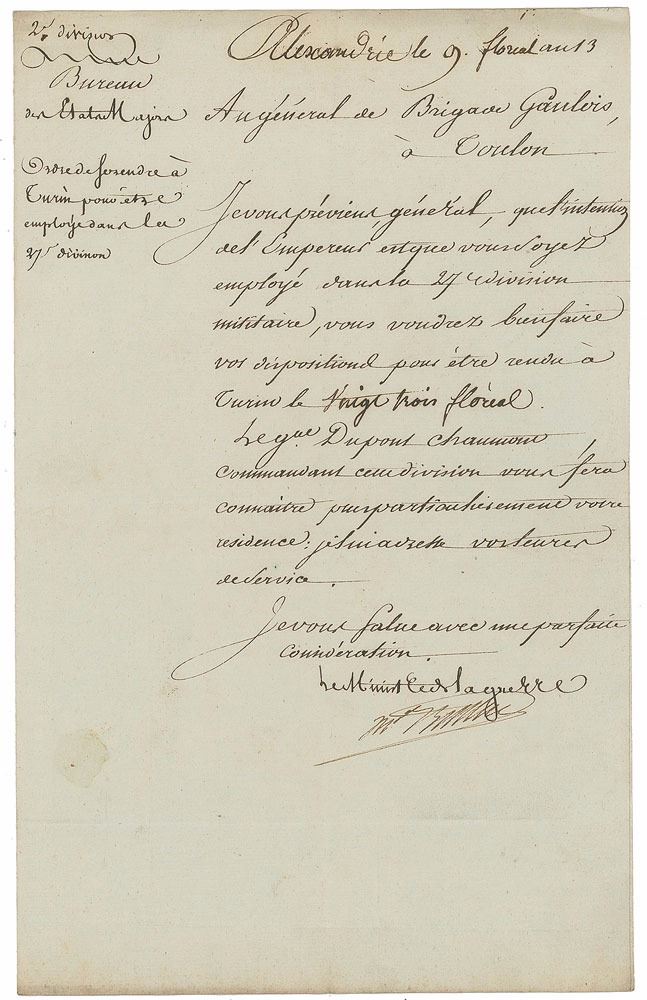 2e. division
Bureau
des Etats Majors
Ordre de se rendre à
Turin pour être
employé dans la
27e division
Alexandrie le 9. floréal an 13
Au général de Brigade Gaulois,
à Toulon
Je vous préviens, général, que l'intention
de l'Empereur est que vous soyez
employé dans la 27 division
militaire, vous voudrez bien faire
vos dispositions pour être rendu à
Turin le Vingt trois floréal.
Le gal Dupont chaumont,
commandant cette division vous fera
connaître plus particulièrement votre
residence: je lui adresse vos lettres
de service.
Je vous salue avec une parfaite
considération.
Le Ministre de la guerre
Mal Berthier